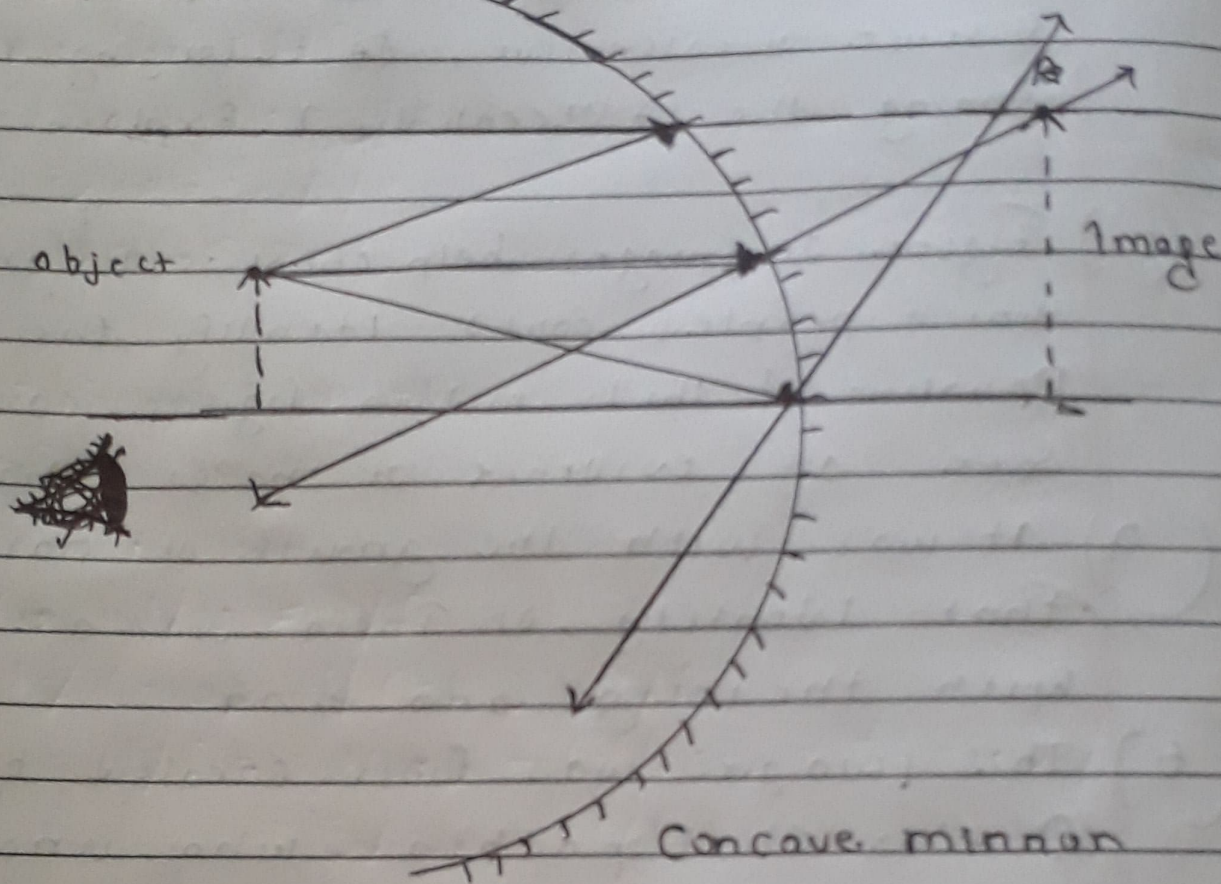 object
Image
Concave minnon